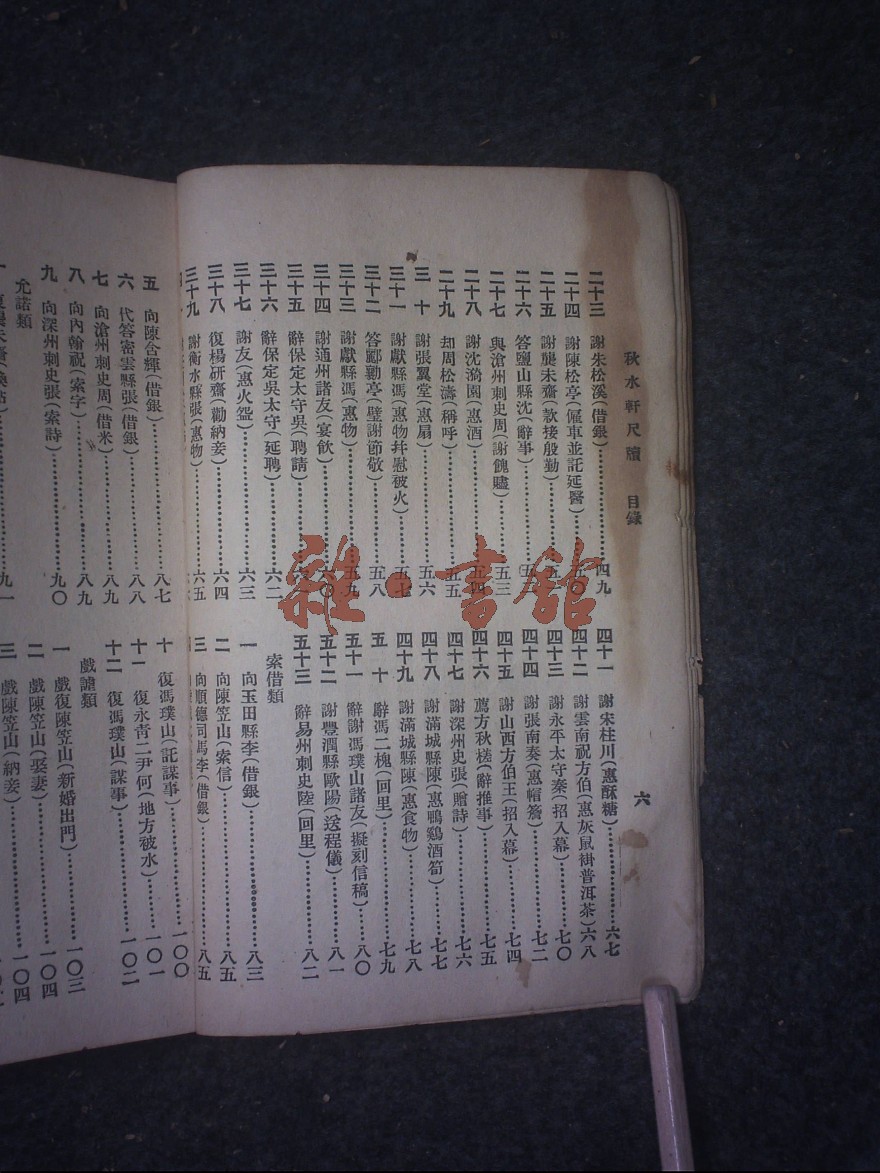 秋水軒尺牘 目錄
六
二十三 謝朱松溪(借銀)四九
二十四 謝陳松亭(僱車並託延醫)五〇
二十五 謝龔未齋(欵接殷勤)
二十六 答鹽山縣沈(辭事)
二十七 與滄州刺史周(謝餽贐)五三
二十八 謝沈漪園(惠酒)五四
二十九 却周松濤(稱呼)五五
三十 謝張翼堂(惠扇)五六
三十一 謝獻縣馮(惠物并慰被火)五七
三十二 答酈勷亭(璧謝節敬)五八
三十三 謝獻縣馮(惠物)五九
三十四 謝通州諸友(宴飲)六〇
三十五 辭保定太守吳(聘請)
三十六 辭保定吳太守(延聘)六二
三十七 謝友(惠火盌)六三
三十八 復楊研齋(勸納妾)六四
三十九 謝衡水縣張(惠物)六五
四十一 謝宋柱川(惠酥糖)六七
四十二 謝雲南祝方伯(惠灰鼠褂普洱茶)六八
四十三 謝永平太守秦(招入幕)七〇
四十四 謝張南奏(惠帽簷)七二
四十五 謝山西方伯王(招入幕)七四
四十六 薦方秋槎(辭推事)七五
四十七 謝深州史張(贈詩)七六
四十八 謝滿城縣陳(惠鴨鷄酒筍)七七
四十九 謝滿城縣陳(惠食物)七八
五十 辭馮二槐(回里)七九
五十一 辭謝馮璞山諸友(擬刻信稿)八〇
五十二 謝豐潤縣歐陽(送程儀)八一
五十三 辭易州刺史陸(回里)八二
索借類
一 向玉田縣李(借銀)八三
二 向陳笠山(索信)八五
三 向順德司馬李(借銀)八五
五 向陳含輝(借銀)八七
六 代答密雲縣張(借銀)八八
七 向滄州刺史周(借米)八九
八 向內翰祝(索字)八九
九 向深州刺史張(索詩)九〇
允諾類
九一
十 復馮璞山(託謀事)一〇〇
十一 復永青二尹何(地方被水)一〇一
十二 復馮璞山(謀事)一〇二
戲謔類
一 戲復陳笠山(新婚出門)一〇三
二 戲陳笠山(娶妻)一〇四
三 戲陳笠山(納妾)一〇四
雜·書館